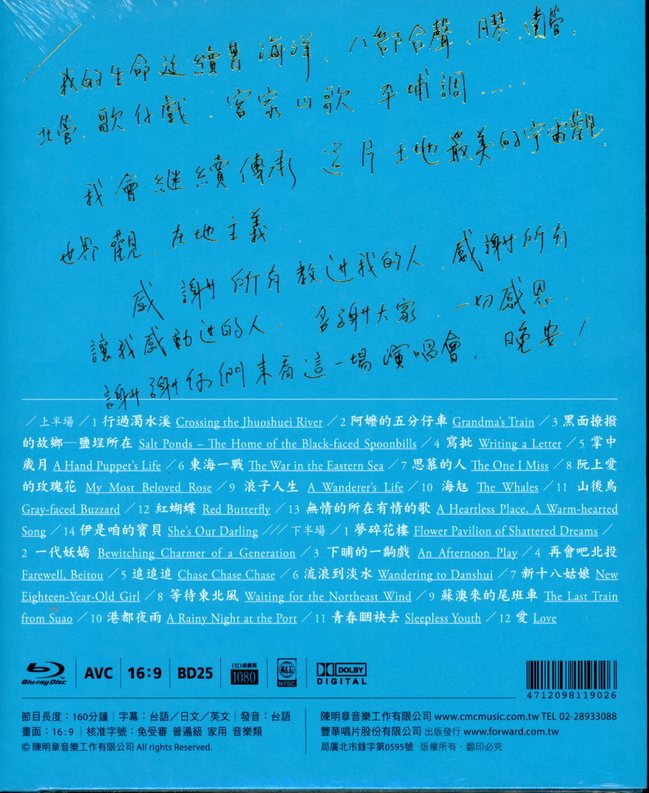 我的生命延續著海洋、八部合聲、
北管、歌仔戲、客家山歌 平埔調......
我會繼續傳承 這片土地最美的宇宙觀、
世界觀、在地主義、
感謝所有教過我的人 感謝所有
讓我感動過的人、多謝大家、一切感恩
謝謝你們來看這一場演唱會、晚安!
／上半場／1 行過濁水溪 Crossing the Jhuoshuei River／2 阿嬤的五分仔車 Grandma's Train／3 黑面撩撥
的故鄉—鹽埕所在 Salt Ponds – The Home of the Black-faced Spoonbills／4 寫批 Writing a Letter／5 掌中
歲月 A Hand Puppet's Life／6 東海一戰 The War in the Eastern Sea／7 思慕的人 The One I Miss／8 阮上愛
的玫瑰花 My Most Beloved Rose／9 浪子人生 A Wanderer's Life／10 海尪 The Whales／11 山後鳥
Gray-faced Buzzard／12 紅蝴蝶 Red Butterfly／13 無情的所在有情的歌 A Heartless Place, A Warm-hearted
Song／14 伊是咱的寶貝 She's Our Darling////下半場／1 夢碎花樓 Flower Pavilion of Shattered Dreams／
2 一代妖嬌 Bewitching Charmer of a Generation／3 下晡的一齣戲 An Afternoon Play／4 再會吧北投
Farewell, Beitou／5 追追追 Chase Chase Chase／6 流浪到淡水 Wandering to Danshui／7 新十八姑娘 New
Eighteen-Year-Old Girl／8 等待東北風 Waiting for the Northeast Wind／9 蘇澳來的尾班車 The Last Train
from Suao／10 港都夜雨 A Rainy Night at the Port／11 青春睏袂去 Sleepless Youth／12 愛 Love
Blu-ray Disc AVC 16:9 BD25 HD高畫質 1080 ALL NTSC DOLBY DIGITAL
4712098119026
節目長度:160分鐘｜字幕:台語／日文／英文｜發音:台語
畫面:16:9｜核准字號:免受審 普遍級 家用 音樂類
©陳明章音樂工作有限公司 All rights Reserved.
陳明章音樂工作有限公司 www.cmcmusic.com.tw TEL 02-28933088
豐華唱片股份有限公司 出版發行 www.forward.com.tw
局廣北市錄字第0595號 版權所有·翻印必究